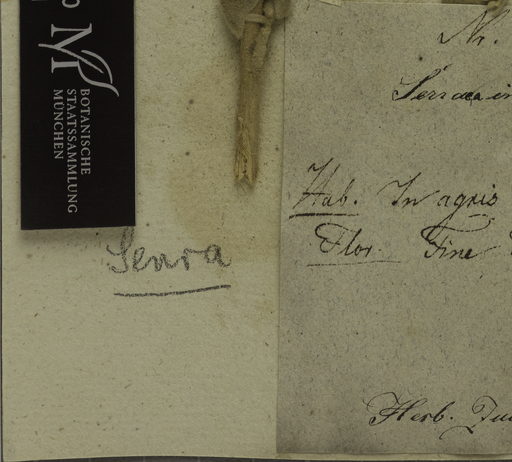 M
BOTANISCHE
STAATSSAMMLUNG
MÜNCHEN
Senra
Nr.
Hab. In agris
Flor. Fine
Herb.